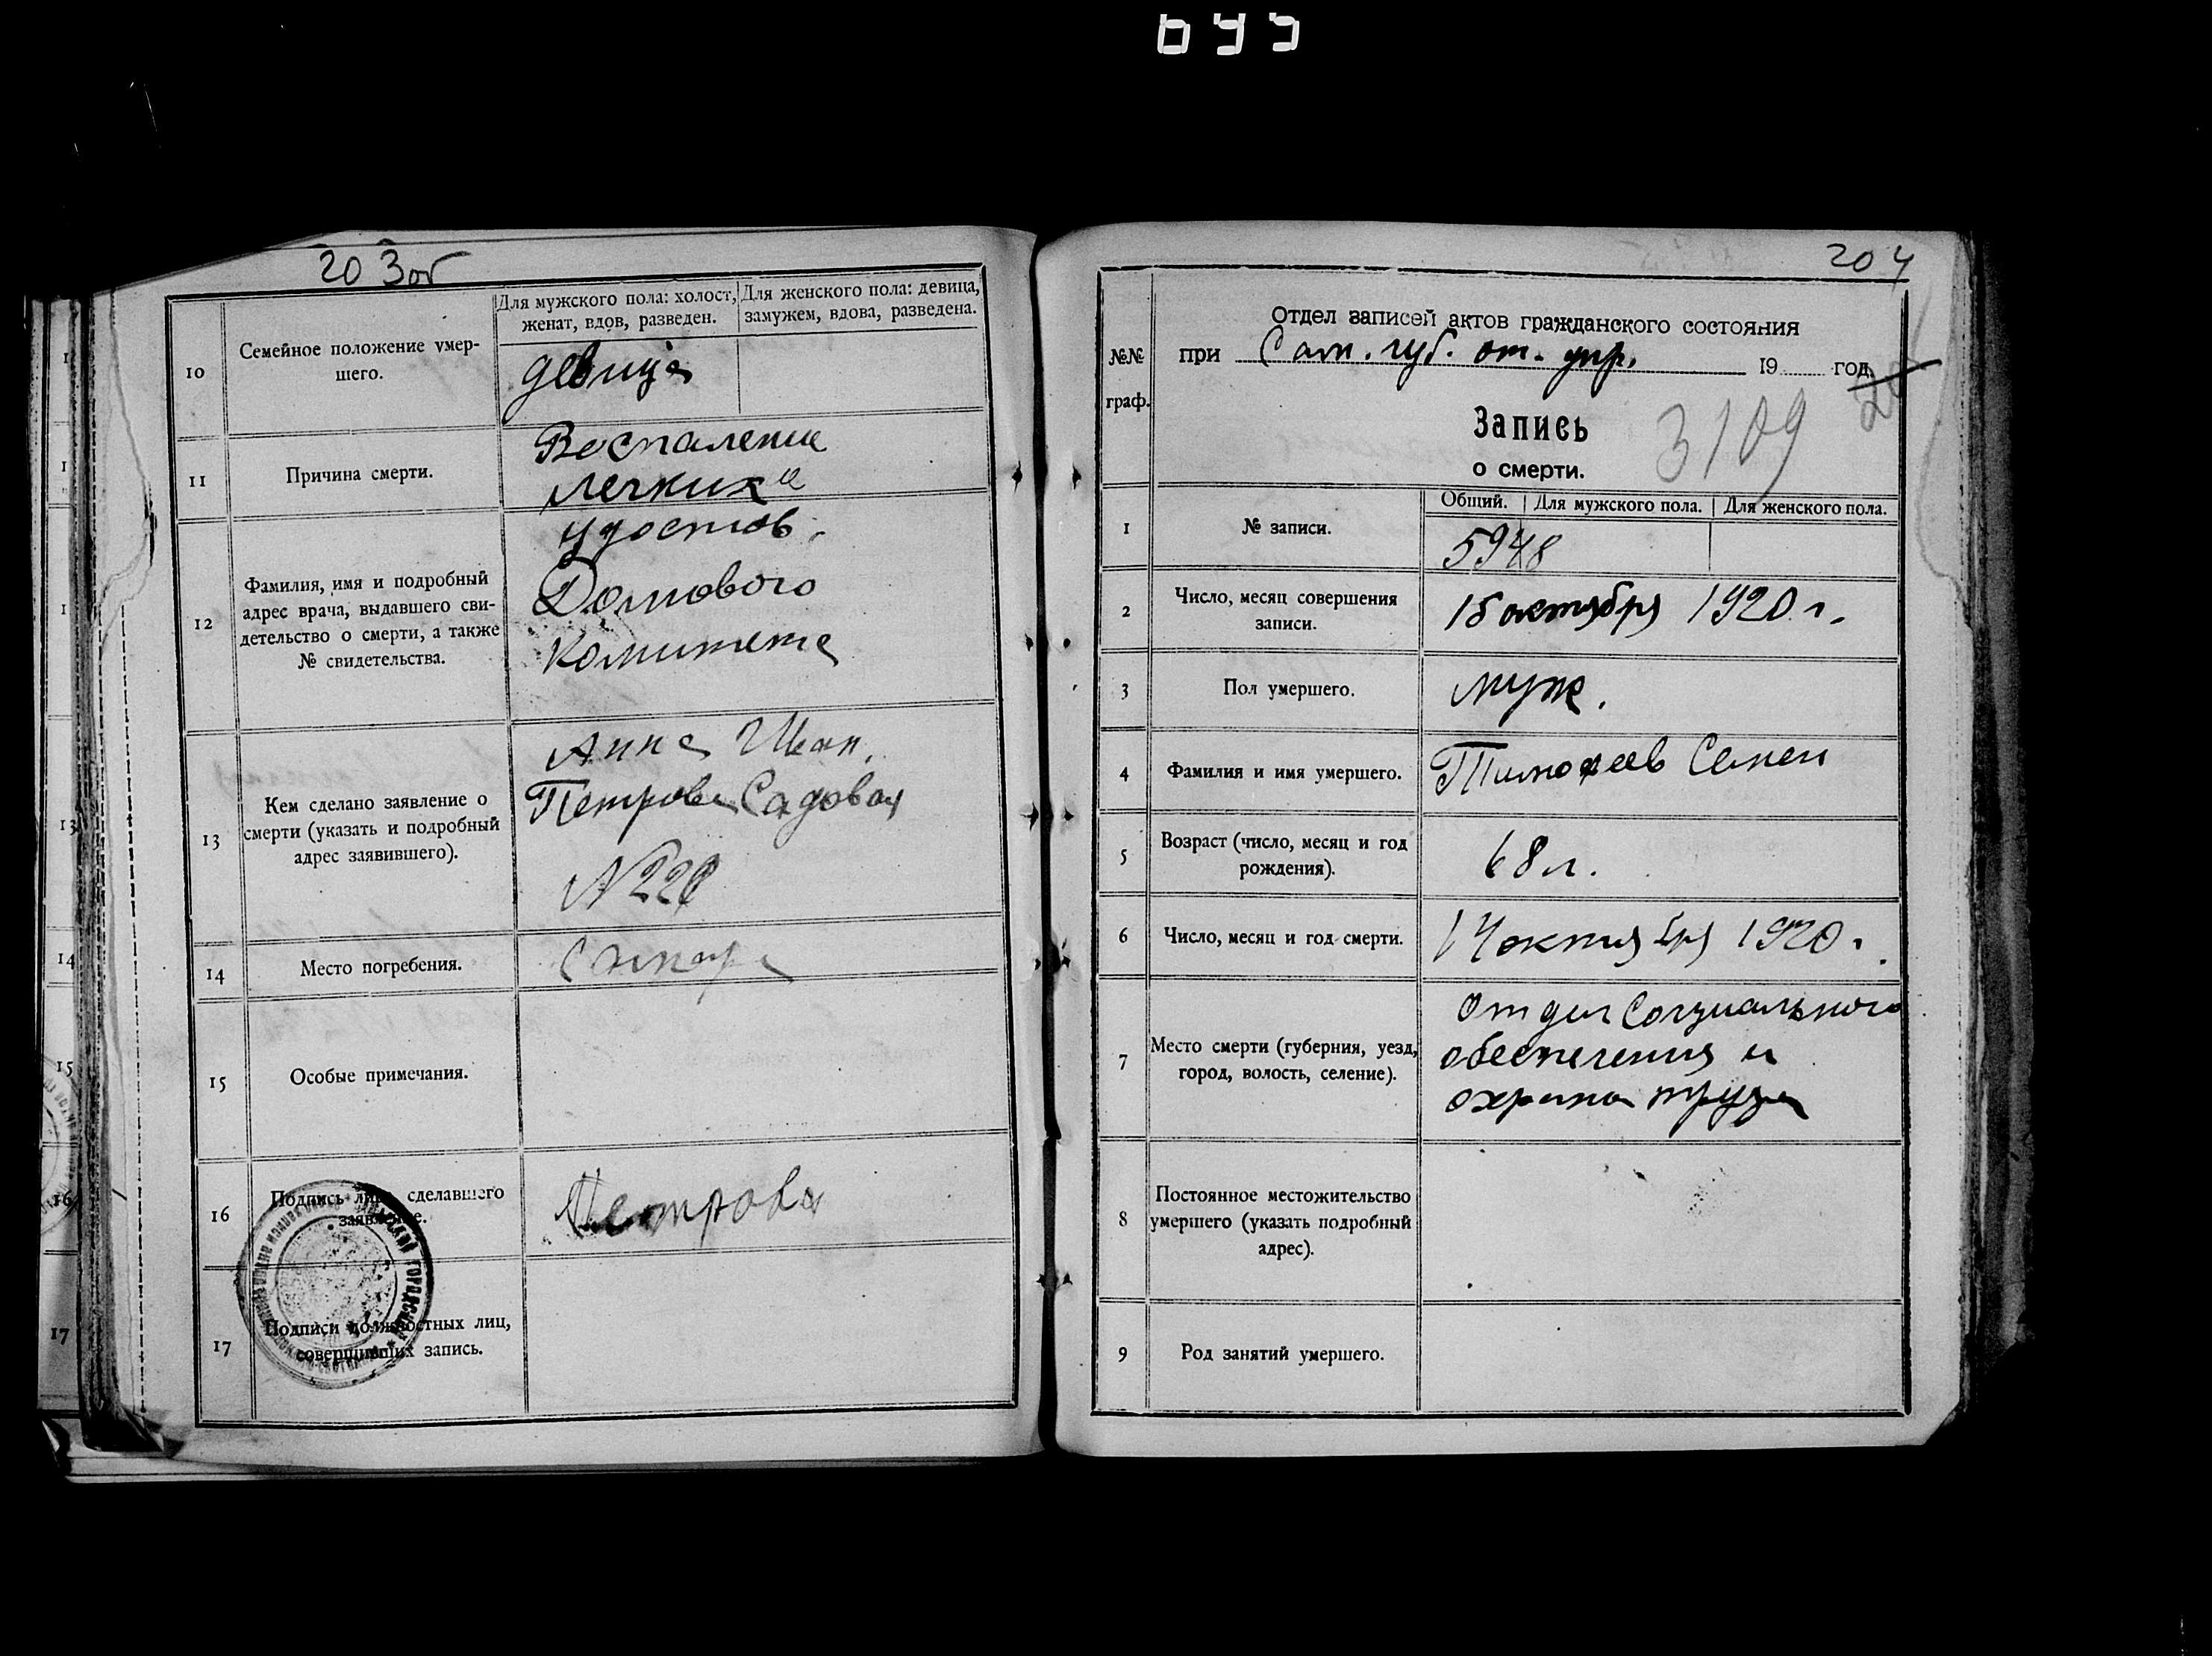 203об
10
Семейное положение умер-
шего.
Для мужского пола: холост,
женат, вдов, разведен.
Для женского пола: девица,
замужем, вдова, разведена.
девица
11
Причина смерти.
Воспаление
легких
12
Фамилия, имя и подробный
адрес врача, выдавшего сви-
детельство о смерти, а также
№ свидетельства.
удостов.
Домового
комитета
13
Кем сделано заявление о
смерти (указать и подробный
адрес заявившего).
Анна Иван.
Петрова Садовая
N 220
14
Место погребения.
Самара
15
Особые примечания.
16
Подпись лица, сделавшего
заявление.
Петрова
17
Подписи должностных лиц,
совершивших запись.
204
№№
граф.
Отдел записей актов гражданского состояния
при Сам. губ. от. упр. 19 год.
Запись
о смерти.
3109
1
№ записи.
Общий. Для мужского пола. Для женского пола.
5948
2
Число, месяц совершения
записи.
15 октября 1920 г.
3
Пол умершего.
муж.
4
Фамилия и имя умершего.
Тимофеев Семен
5
Возраст (число, месяц и год
рождения).
68 л.
6
Число, месяц и год смерти.
14 октября 1920 г.
7
Место смерти (губерния, уезд,
город, волость, селение).
Отдел Социального
обеспечения и
охрана труда
8
Постоянное местожительство
умершего (указать подробный
адрес).
9
Род занятий умершего.
13
14
15
16
17